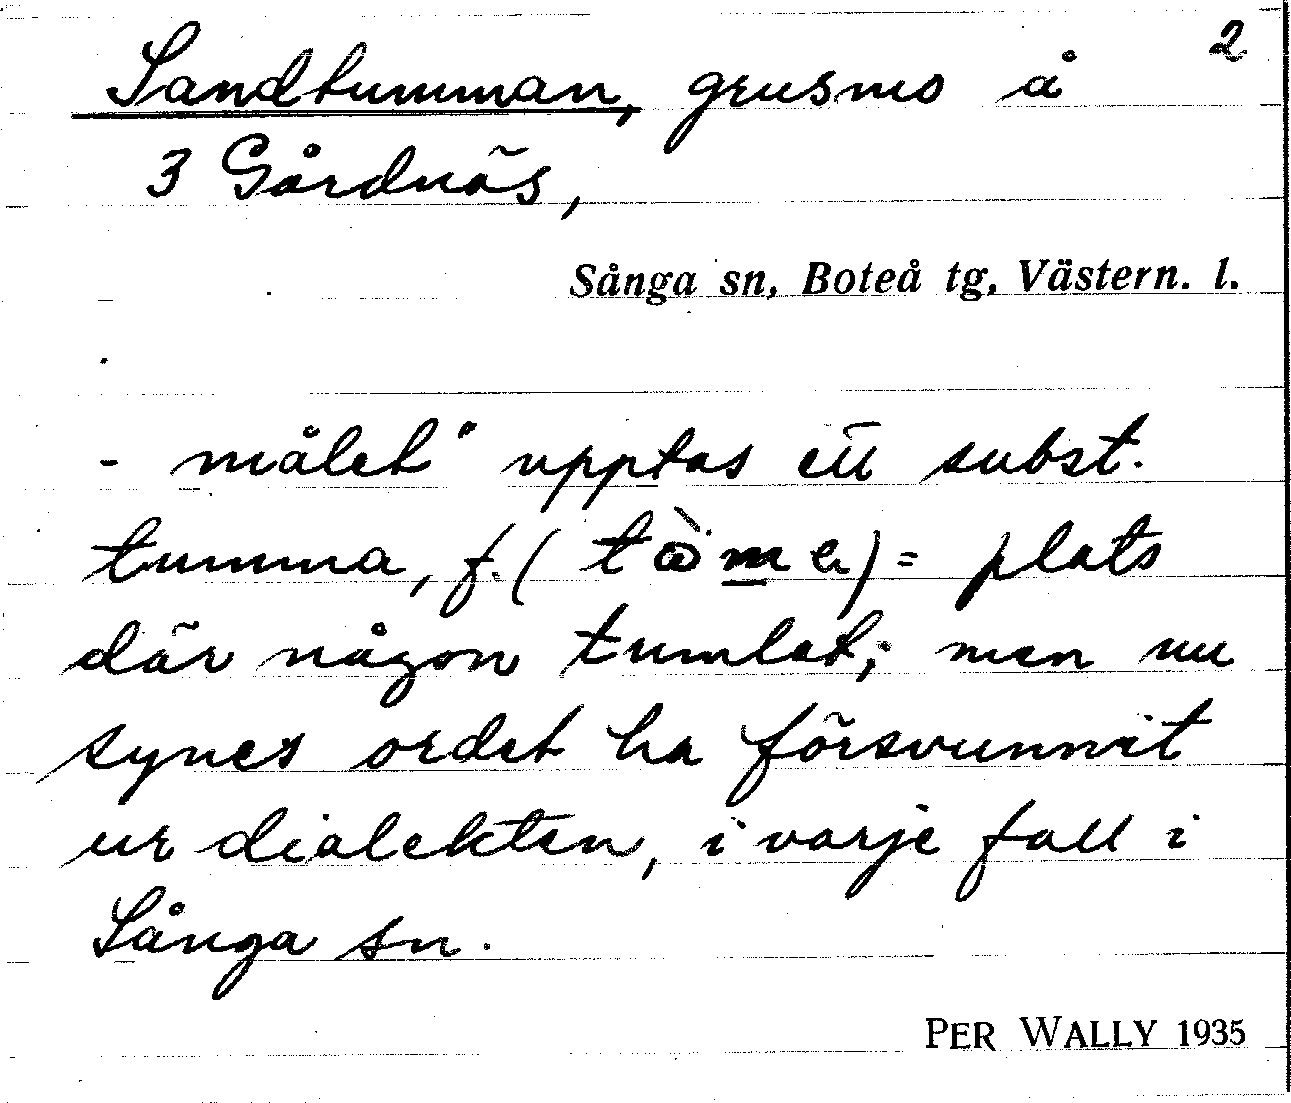 2
Sandtumman, grusmo å
3 Gårdnäs,
Sånga sn, Boteå tg, Västern. l.
- målet" upptas ett subst.
tumma, f. ( ) = plats
där någon tumlat; men nu
synes ordet ha försvunnit
ur dialekten, i varje fall i
Sånga sn.
PER WALLY 1935